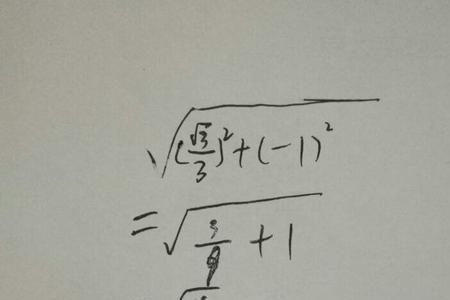 √((√3/3)²+(-1)²)
=√(3/9+1)